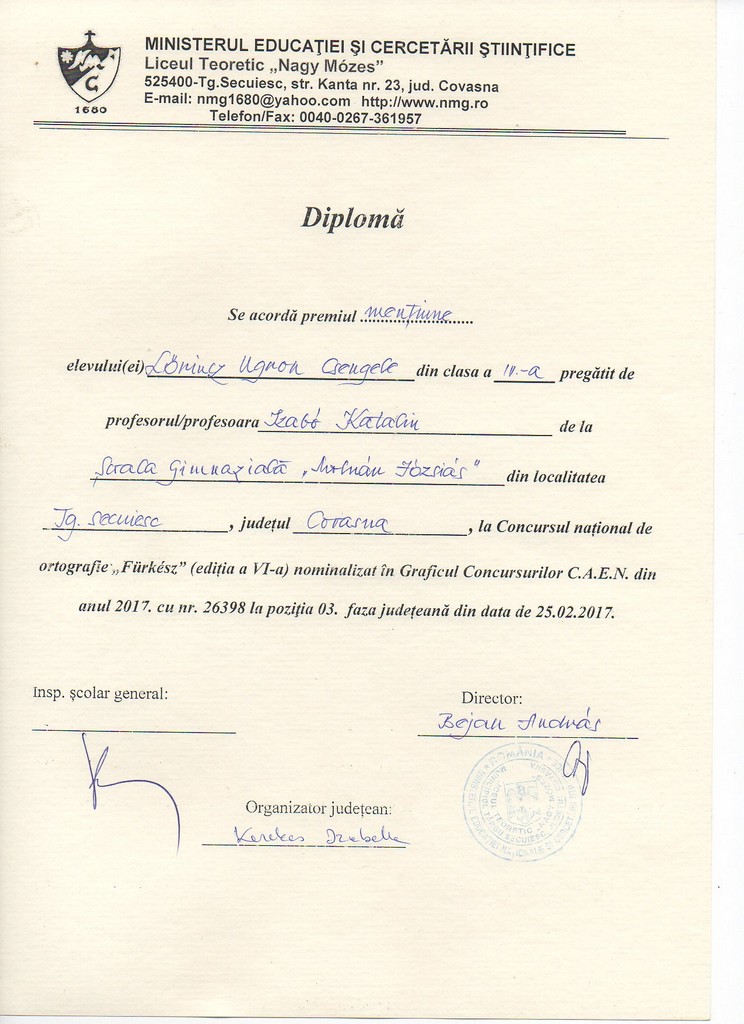 MINISTERUL EDUCAŢIEI ŞI CERCETĂRII ŞTIINŢIFICE
Liceul Teoretic „Nagy Mózes”
525400-Tg.Secuiesc, str. Kanta nr. 23, jud. Covasna
E-mail: nmg1680@yahoo.com http://www.nmg.ro
Telefon/Fax: 0040-0267-361957
NM
G
1680
Diplomă
Se acordă premiul mențiune
elevului(ei) Lőrincz Ugron Csengele din clasa a IV.-a pregătit de
profesorul/profesoara Szabó Katalin de la
Școala Gimnazială „Molnár Józsiás” din localitatea
Tg. Secuiesc, județul Covasna, la Concursul național de
ortografie „Fürkész” (ediția a VI-a) nominalizat în Graficul Concursurilor C.A.E.N. din
anul 2017. cu nr. 26398 la poziția 03. faza județeană din data de 25.02.2017.
Insp. școlar general:
Director:
Bejan András
ROMÂNIA
Organizator județean:
Kerekes Izabella